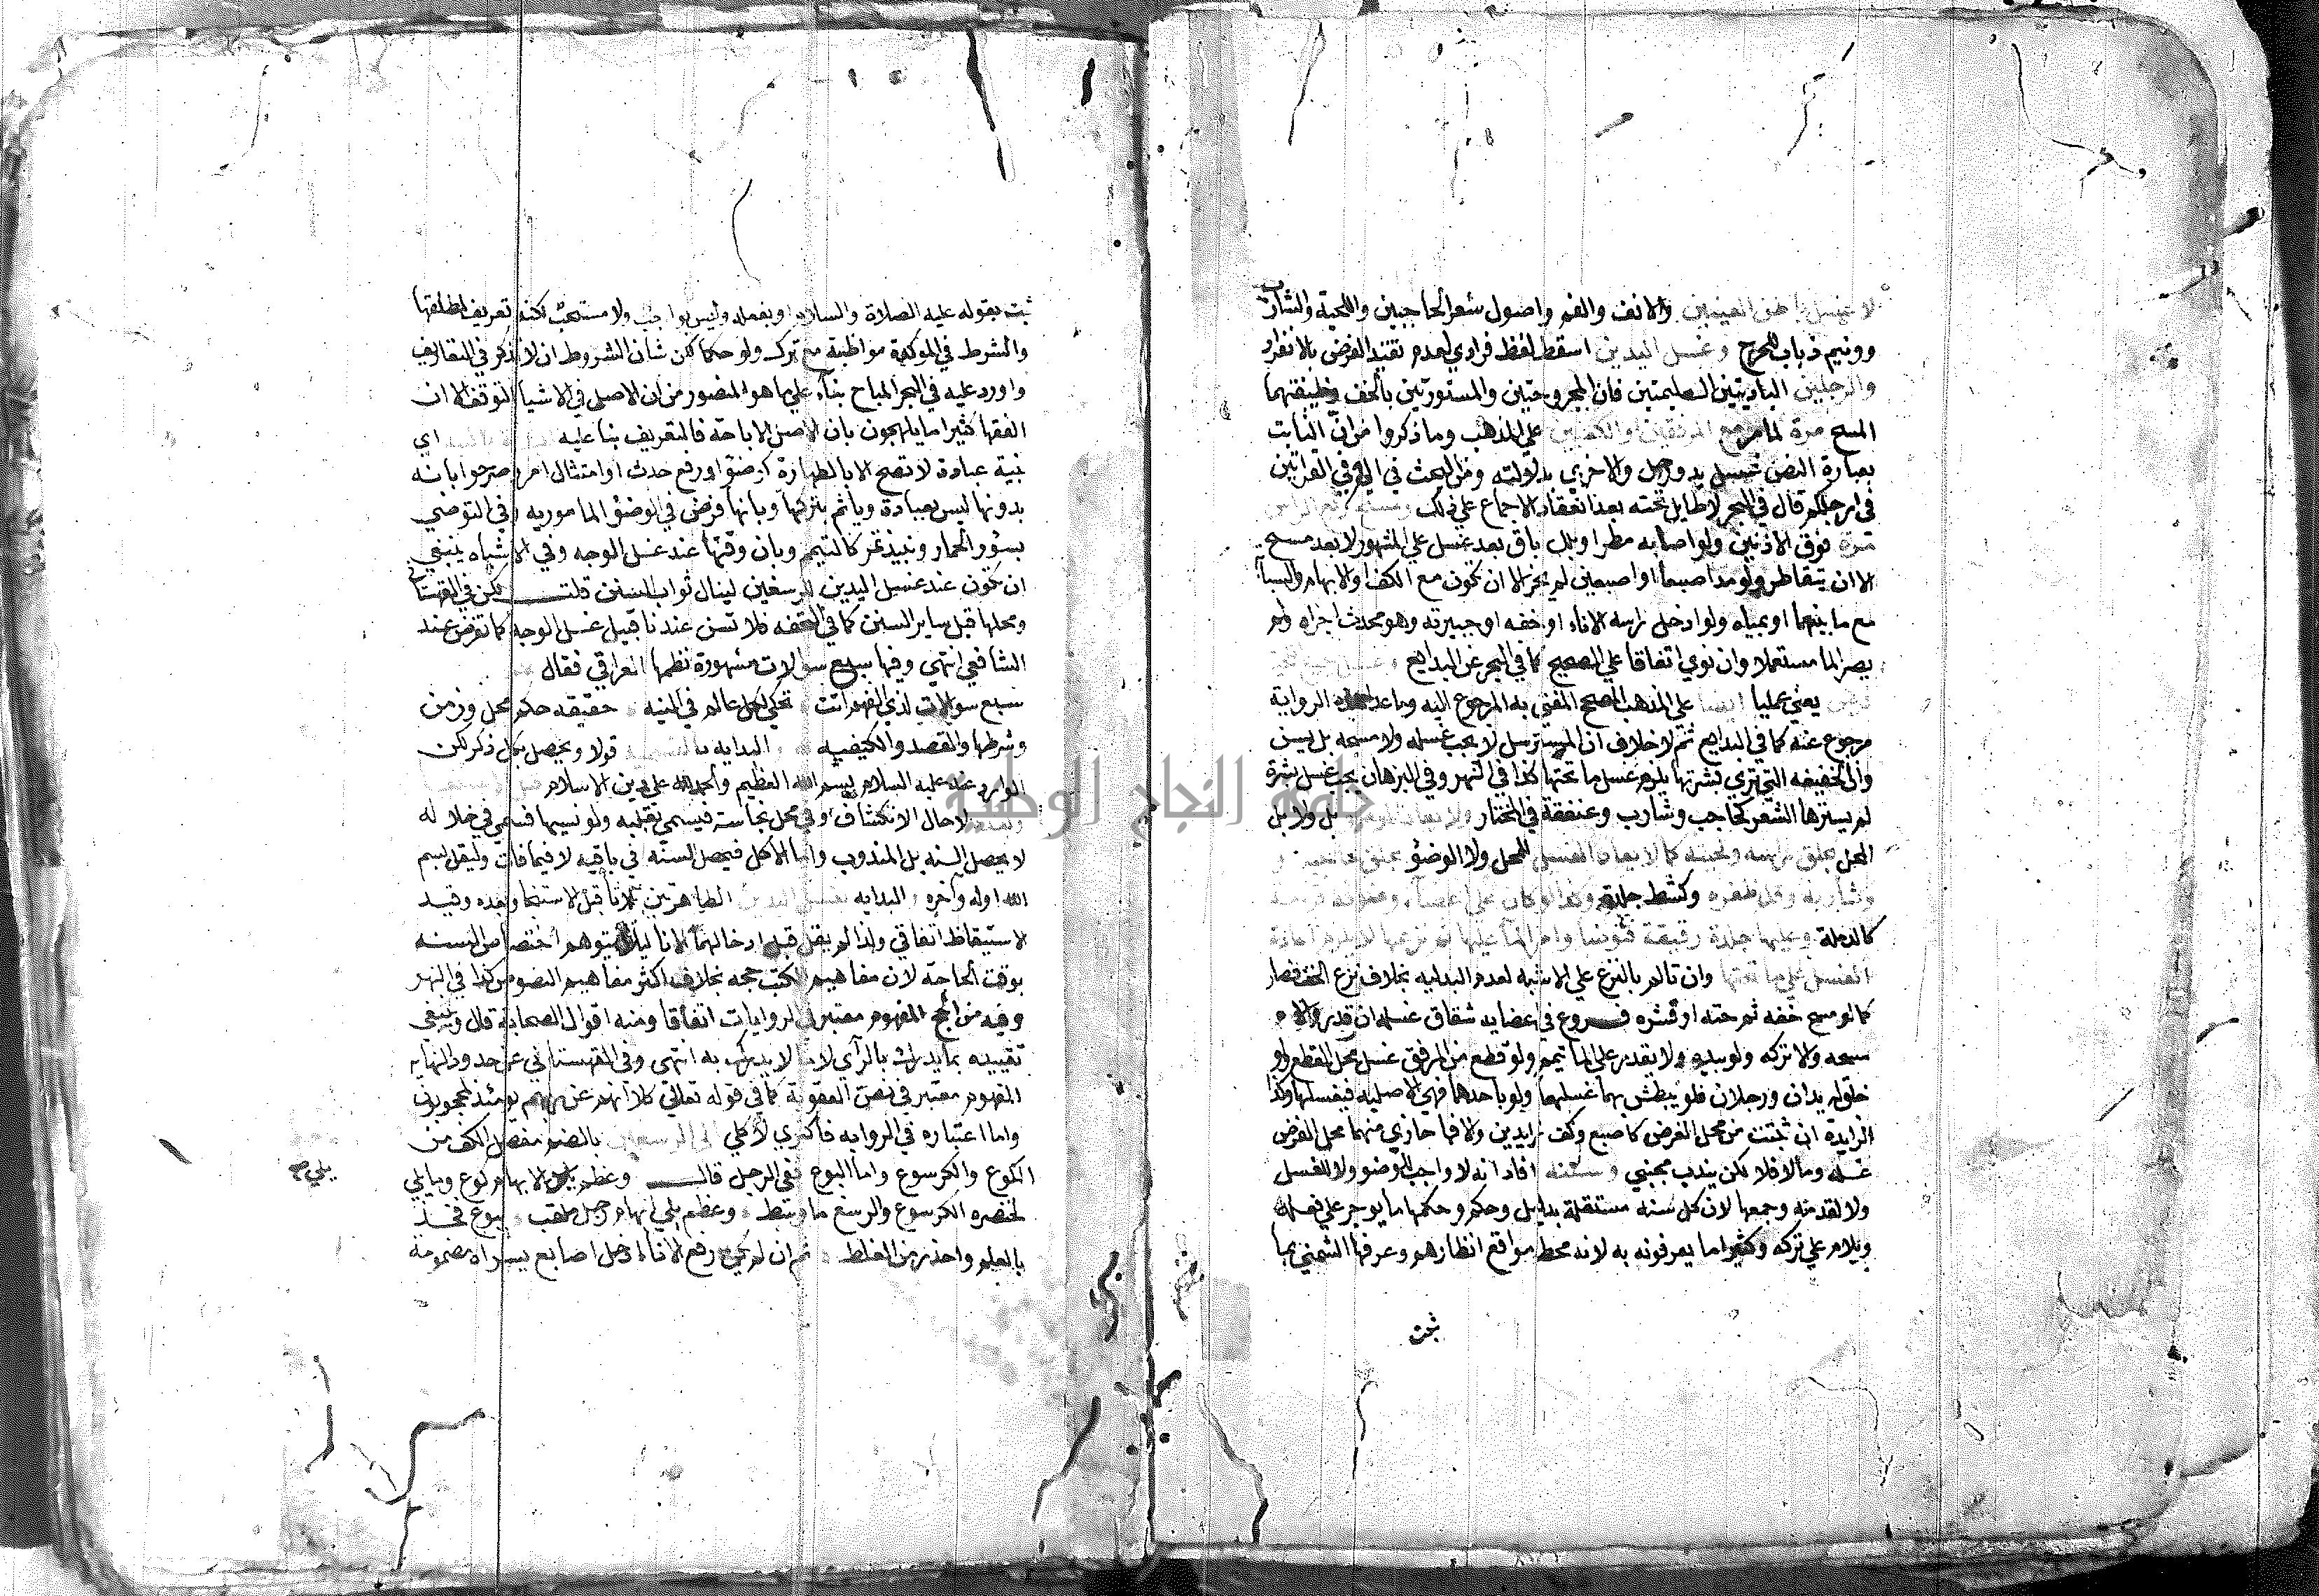 لا غسل باطن العينين والانف والفم واصول شعر الحاجبين واللحية والشارب
وونيم ذباب للحرج وغسل اليدين اسقط لفظ فرادي لعدم تقيد الفرض بالانفراد
والرجلين الباديتين السليمتين فان المجروحتين والمستورتين بالخف وظيفتهما
المسح مرة لما مر مع المرفقين والكعبين علي المذهب وما ذكروا من ان الثابت
بعبارة النص غسل يد ورجل والاخري بدلالته ومن البحث في الي وفي القراتين
في ارجلكم قال في البحر لا طايل تحته بعد انعقاد الاجماع علي ذلك ومسح ربع الراس
مرة فوق الاذنين ولو اصابه مطر او بلل باق بعد غسل علي المشهور لا بعد مسح
الا ان يتقاطر ولو مد اصبعا او اصبعين لم يجز الا ان تكون مع الكف او الابهام والسبابة
مع ما بينهما او بمياه ولو ادخل راسه الاناء او خفه او جبيرته وهو محدث اجزاه ولم
يصر الما مستعملا وان نوي اتفاقا علي الصحيح كما في البحر عن البدايع وغسل جميع اللحية
فرض يعني عمليا ايضا علي المذهب الصحيح المفتي به المرجوع اليه وما عدا هذه الرواية
مرجوع عنه كما في البدايع ثم لا خلاف ان المسترسل لا يجب غسله ولا مسحه بل يسن
وان الخفيفه التي تري بشرتها يلزم غسل ما تحتها كذا في النهر وفي البرهان يجب غسل بشرة
لم يسترها الشعر كحاجب وشارب وعنفقة في المختار ولا يعاد الوضو بل ولا بل
المحل بحلق راسه ولحيته كما لا يعاد الغسل للمحل ولا الوضو بحلق
وشاربه وقلم ظفره وكشط جلده وكذا لو كان علي اعضاء وضوئه قرحة
كالدملة وعليها جلدة رقيقة فتوضا وامر الما عليها ثم نزعها لا يلزم اعادة
الغسل علي ما تحتها وان تالم بالنزع علي الاشبه لعدم البدليه بخلاف نزع الخف فصار
كما لو مسح خفه ثم حته او قشره فـــروع في اعضايه شقاق غسله ان قدر والا
مسحه والا تركه ولو بيده ولا يقدر علي الما تيمم ولو قطع من المرفق غسل محل القطع ولو
خلق له يدان ورجلان فلو يبطش بهما غسلهما ولو باحدهما فهي الاصليه فيغسلها وكذا
الزايدة ان نبتت من محل الفرض كاصبع وكف زايدين والا فما حاذي منهما محل الفرض
غسله وما لا فلا لكن يندب مجتبي وسننه افاد انه لا واجب للوضو ولا للغسل
والا لقدمه وجمعها لان كل سنه مستقلة بدليل وحكم وحكمها ما يوجر علي فعله
ويلام علي تركه وكثيرا ما يعرفونه به لانه محط مواقع انظارهم وعرفها الشمني بما
ثبت
ثبت بقوله عليه الصلاة والسلام او بفعله وليس بواجب ولا مستحب لكنه تعريف لمطلقها
والشرط في الموكدة مواظبة مع ترك ولو حكما لكن شان الشروط ان لا تذكر في التعاريف
واورد عليه في البحر المباح بناء علي ما هو المنصور من ان الاصل في الاشيا التوقف الا ان
الفقها كثيرا ما يلهجون بان الاصل الاباحة فالتعريف بنا عليه اي
نية عبادة لا تصح الا بالطهارة كوضو او رفع حدث او امتثال امر وصرحوا بانه
بدونها ليس بعبادة وياثم بتركها وبانها فرض في الوضو المامور به وفي التوضي
بسؤر الحمار ونبيذ تمر كالتيمم وبان وقتها عند غسل الوجه وفي الاشباه ينبغي
ان تكون عند غسل اليدين للرسغين لينال ثواب السنن قلت لكن في القهستاني
ومحلها قبل ساير السنن كما في التحفه فلا تسن عندنا قبيل غسل الوجه كما تفرض عند
الشافعي انتهي وفيها سبع سوالات مشهورة نظمها العراقي فقال
سبع سوالات لذي الفهم اتت تحكي لكل عالم في النيه حقيقه حكم محل وزمن
وشرطها والقصد والكيفيه والبدايه بالتسميه قولا ويحصل بكل ذكر لكن
الوارد عنه عليه السلام بسم الله العظيم والحمد لله علي دين الاسلام
الا حال الانكشاف وفي محل نجاسة فيسمي بقلبه ولو نسيها فسمي في خلاله
لا يحصل السنه بل المندوب واما الاكل فيحصل السنه في باقيه لا فيما فات وليقل بسم
الله اوله واخره والبدايه بغسل اليدين الطاهرتين ثلاثا قبل الاستنجا وبعده وقيد
الاستيقاظ اتفاقي ولذا لم يقل قبل ادخالهما الانا ليلا يتوهم اختصاص السنه
بوقت الحاجة لان مفاهيم الكتب حجه بخلاف اكثر مفاهيم النصوص كذا في النهر
وفيه من الحج المفهوم معتبر في الروايات اتفاقا ومنه اقوال الصحابة قال وينبغي
تقييده بما يدرك بالراي لا ما لا يدرك به انتهي وفي القهستاني عن حدود النهايه
المفهوم معتبر في نص العقوبة كما في قوله تعالي كلا انهم عن ربهم يومئذ لمحجوبون
واما اعتباره في الروايه فاكثري لا كلي الي الرسغين بالضم مفصل الكف من
الكوع والكرسوع واما البوع ففي الرجل قال وعظم يلي الابهام كوع وما يلي
لخنصره الكرسوع والرسغ ما وسط وعظم يلي ابهام رجل ملقب ببوع فخذ
بالعلم واحذر من الغلط ثم ان لم يمكن رفع الاناء ادخل اصابع يسراه مضمومة
يلي صح
جامعة النجاح الوطنية